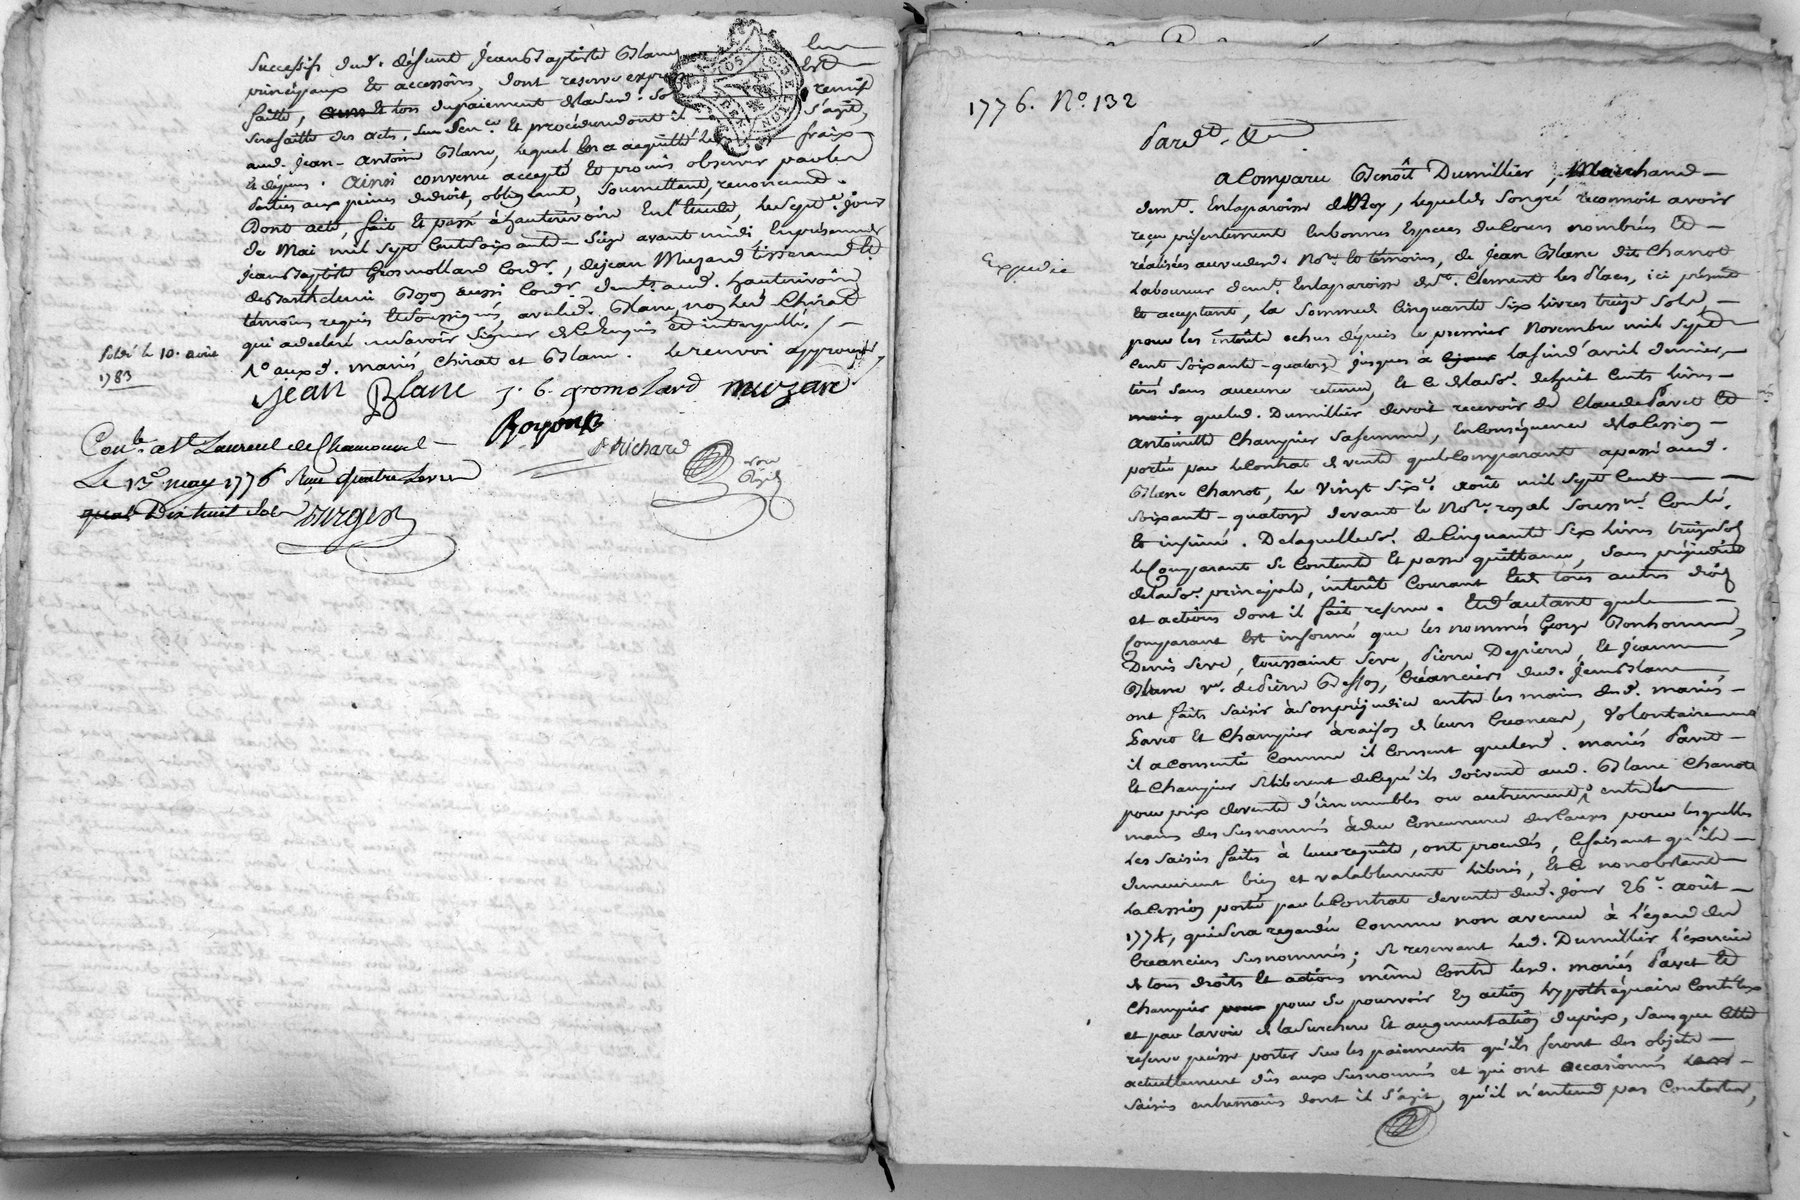 successifs dud. défunt Jean Baptiste Blanc
principaux et accessoires, dont reserve expresse
faitte, et lors du paiement de lad. so
sera faitte des acts, sentence et procédure dont il s'agit,
aud. Jean-Antoine Blanc, lequel en a acquitté les fraix
et dépens. Ainsi convenu accepté et promis observer par les
parties aux peines de droit, obligeant, soumettant, renonceant.
Dont acte, fait et passé à hauterivoire en l'etude, le sept.e jour
de Mai mil sept cent soixante-seize avant midi en présence de
Jean Baptiste Grosmollard cord.r, de Jean Muzard tisserand et
de Barthelemi Boyon aussi cord.r demt. aud. hauterivoire
témoins requis et soussignés, avec led. Blanc, non lesd. Chirat
qui a declaré ne savoir signer de ce enquis et interpellé. /.
1.o auxd. mariés Chirat et Blanc. le renvoi approuvé
soldé le 10. avril
1783
jean Blanc J. b. gromolard muzard
Boyon
Richard
Con.lé a St Laurent de Chamousset
Le 13 may 1776 Reçu quatre livres
dix huit sols
1776. No. 132
Pard.t &c.
A Comparu Benoît Dumillier, Marchand
demt. en la paroisse de , lequel de son gré reconnoit avoir
reçu présentement en bonnes especes de cours nombrées et
réalisées au vu dud. No.re et témoins, de Jean Blanc dit Chanot
Expediée
laboureur demt. en la paroisse de St. Clement les Places, ici présent
et acceptant, la somme de cinquante six livres treize sols,
pour les intérêts echus dépuis le premier Novembre mil sept
cent soixante-quatorze jusques à la fin d'avril dernier,
sans aucune retenue, et ce de la so.e de huit cents livres
que led. Dumillier devoit recevoir de Claude Pavet et
Antoinette Champier sa femme, en conséquence de la cession
portée par le contrat de vente que le comparant a passé aud.
Blanc Chanot, le vingt six.e août mil sept cent
soixante-quatorze devant le No.re royal soussiné Con.lé
et insinué. De laquelle so.e de cinquante six livres treize sols
le comparant se contente et passe quittance, sans préjudice
de la so.e principale, intérêt courant et de tous autres droits
et actions dont il fait reserve. Et d'autant que le
comparant est informé que les nommés George Bonhomme,
Denis Seve, toussaint Seve, Pierre Depierre, et Jeanne
Blanc v.e de Pierre Besson, créanciers dud. Jean Blanc
ont faits saisir à son préjudice entre les mains desd. mariés
Pavet et Champier à raison de leurs creances, volontairement
il a consenti comme il consent que lesd. mariés Pavet
et Champier se liberent de ce qu'ils doivent aud. Blanc Chanot
pour prix de vente d'immeubles ou autrement, entre les
mains des susnommés à due concurrence des causes pour lesquelles
les saisies faites à leur requête, ont procédés, ce faisant qu'ils
demeurent bien et valablement liberés, et ce nonobstant
la cession portée par le contrat de vente dud. jour 26.e août
1774, qui sera regardée comme non avenue à l'égard des
creanciers susnommés; se reservant led. Dumillier l'exercice
de tous droits et actions même contre lesd. mariés Pavet et
Champier pour se pourvoir en action hypothéquaire contr'eux
et par la voie de la surchere et augmentation du prix, sans que cette
reserve puisse porter sur les paiements qu'ils feront des objets
actuellement dûs aux susnommés et qui ont occasionnés les
saisies entremains dont il s'agit, qu'il n'entend pas contester,